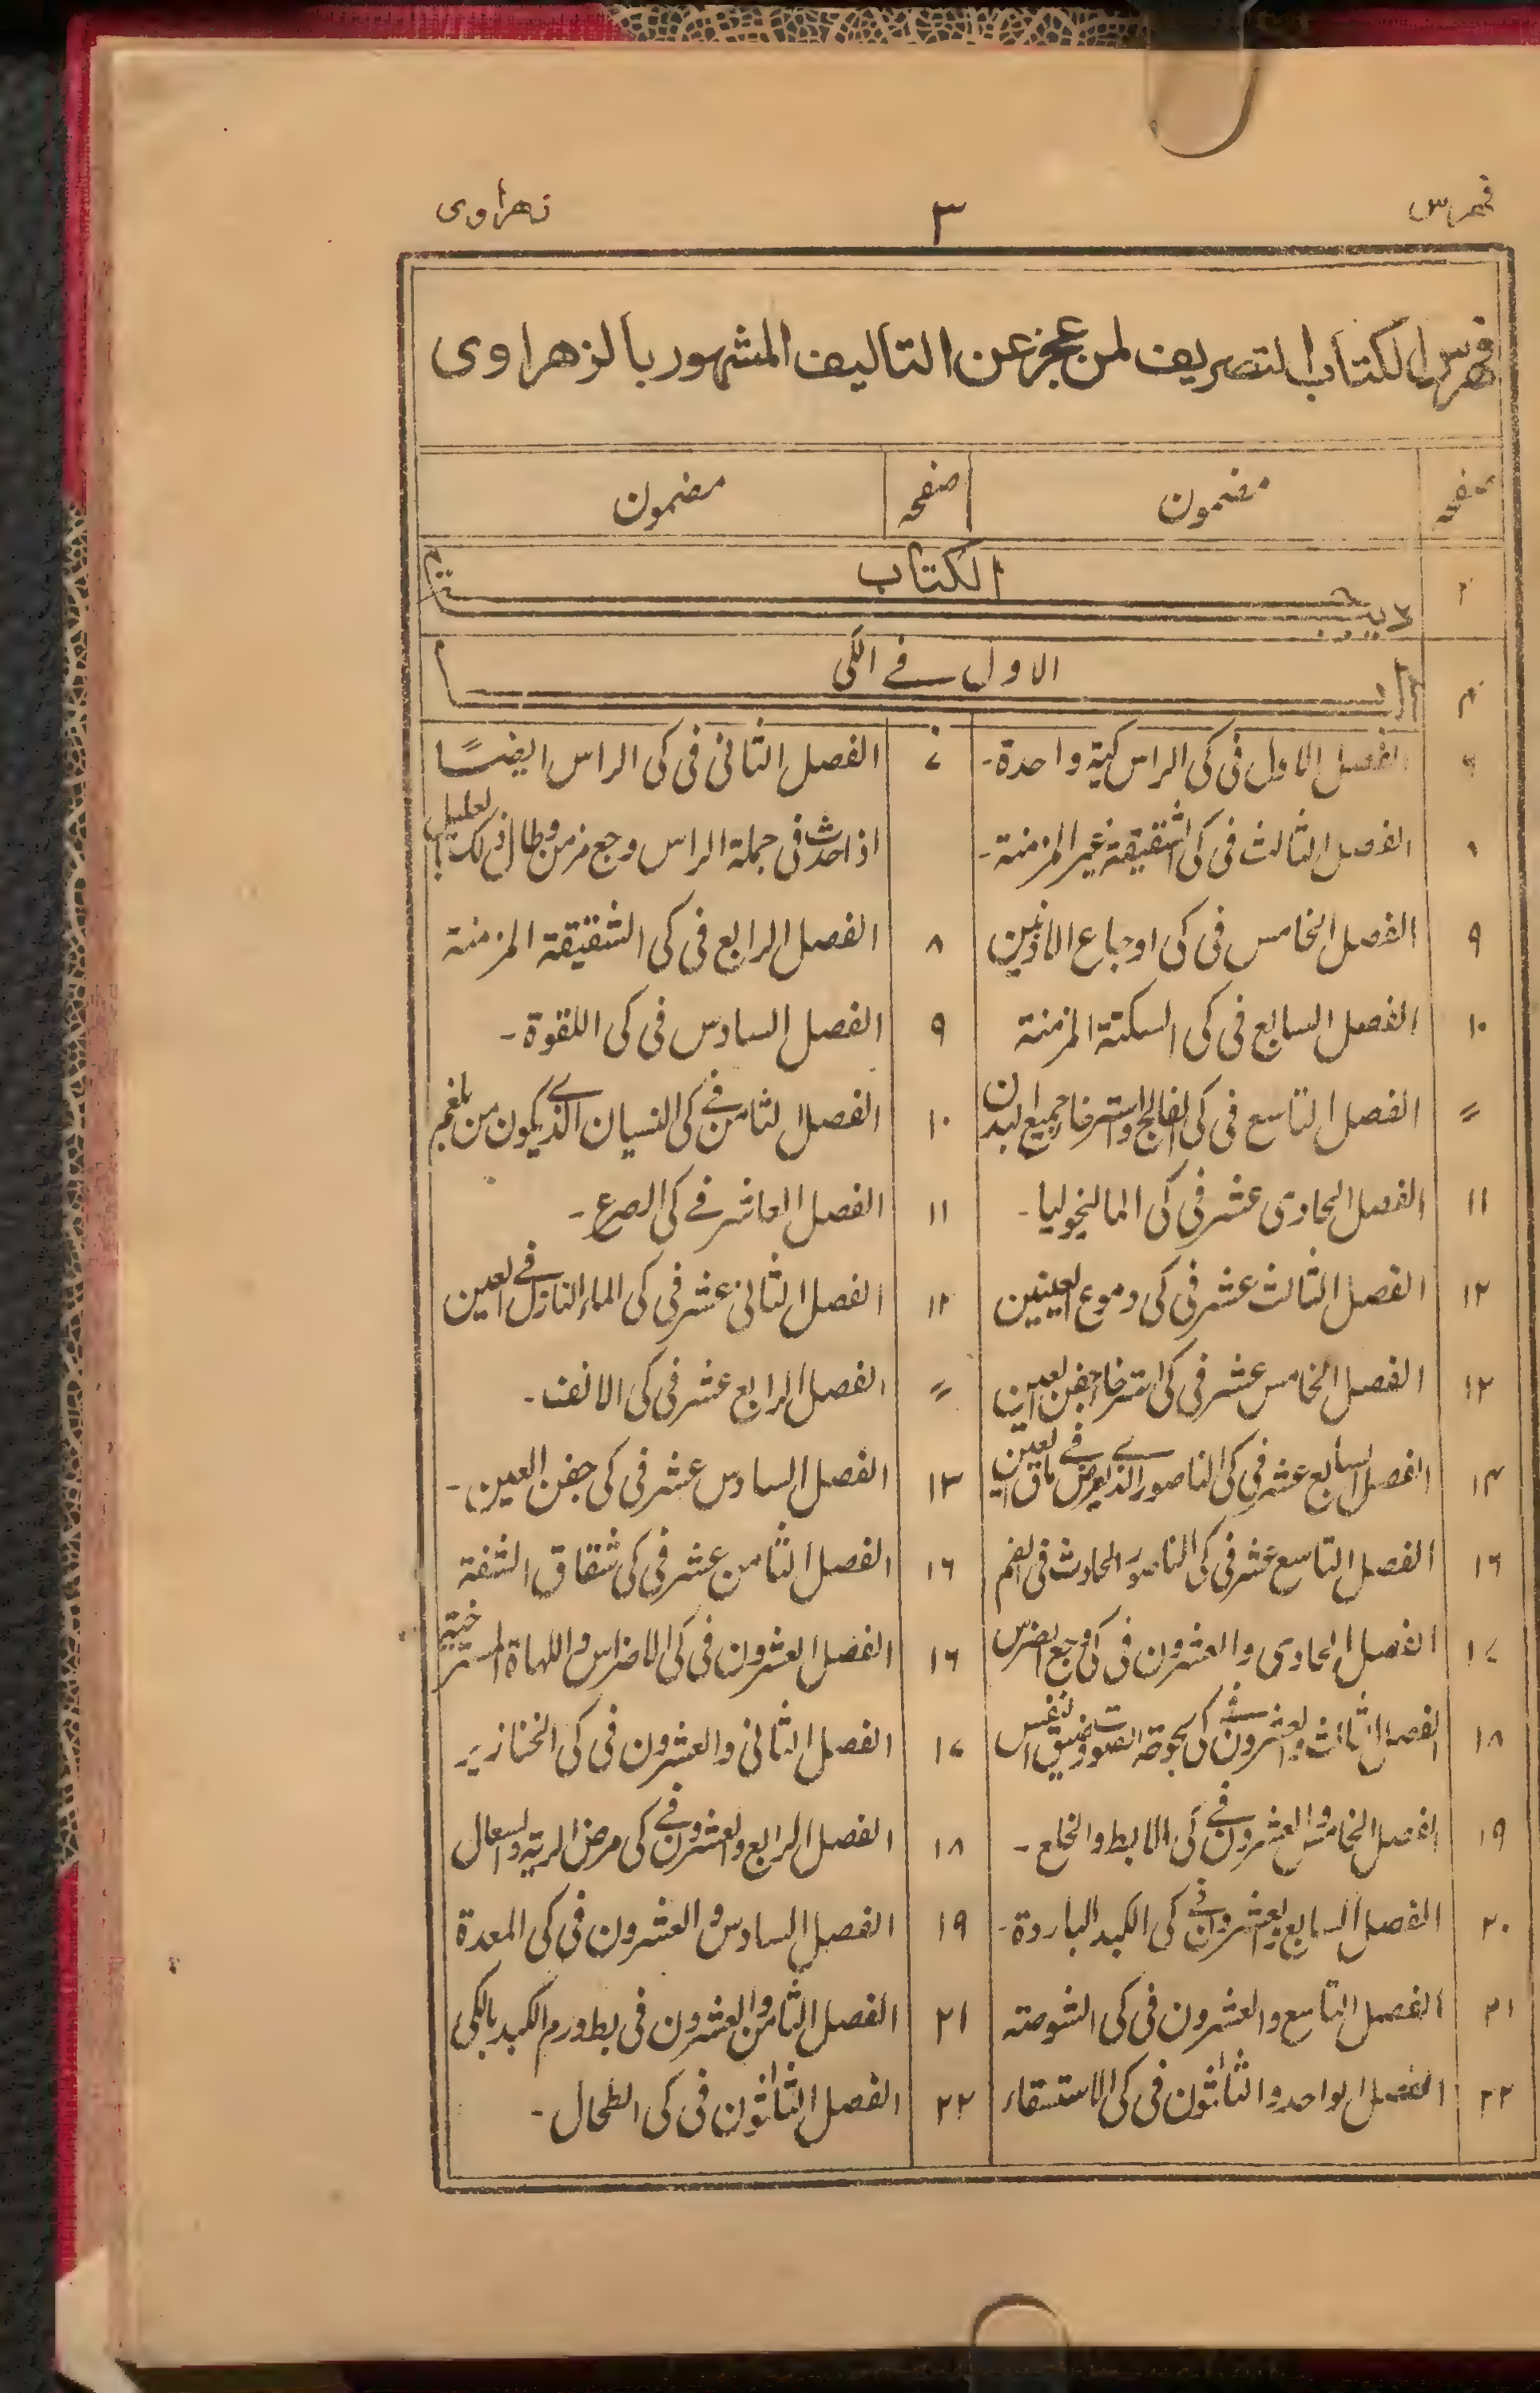 فهرس ٣ زهراوی
فهرس الكتاب التصريف لمن عجز عن التاليف المشهور بالزهراوی
صفحه مضمون صفحه مضمون
٢ ديباجة الكتاب
٤ الباب الاول فے الكی
٦ الفصل الاول فی كی الراس كية واحدة- ٧ الفصل الثانی فی كی الراس ايضًا
٨ الفصل الثالث فی كی الشقيقة غير المزمنة- اذا حدث فی جملة الراس وجع مزمن وطال ذلك بالعليل
٩ الفصل الخامس فی كی اوجاع الاذنين ٨ الفصل الرابع فی كی الشقيقة المزمنة
١٠ الفصل السابع فی كی السكتة المزمنة ٩ الفصل السادس فی كی اللقوة-
〃 الفصل التاسع فی كی الفالج واسترخاء جميع البدن ١٠ الفصل الثامن فے كی النسيان الذے يكون من بلغم
١١ الفصل الحادی عشر فی كی المالنجوليا- ١١ الفصل العاشر فے كی الصرع-
١٢ الفصل الثالث عشر فی كی دموع العينين ١٢ الفصل الثانی عشر فی كی الماء النازل فے العين
١٣ الفصل الخامس عشر فی كی استرخاء جفن العين 〃 الفصل الرابع عشر فی كی الانف-
١٤ الفصل السابع عشر فی كی الناصور الذے يعرض فے ماق العين ١٣ الفصل السادس عشر فی كی جفن العين-
١٦ الفصل التاسع عشر فی كی الناصور الحادث فی الفم ١٦ الفصل الثامن عشر فی كی شقاق الشفة
١٧ الفصل الحادی والعشرون فی كی وجع الضرس ١٦ الفصل العشرون فی كی الاضراس واللهاة المسترخية
١٨ الفصل الثالث والعشرون فے كی بحوحة الصوت وضيق النفس ١٧ الفصل الثانی والعشرون فی كی الخنازير
١٩ الفصل الخامس والعشرون فے كی الابط والخلع- ١٨ الفصل الرابع والعشرون فے كی مرض الرية والسعال
٢٠ الفصل السابع والعشرون فے كی الكبد الباردة- ١٩ الفصل السادس والعشرون فی كی المعدة
٢١ الفصل التاسع والعشرون فی كی الشوصة ٢١ الفصل الثامن والعشرون فی بط ورم الكبد بالكی
٢٢ الفصل الواحد والثلثون فی كی الاستسقاء ٢٢ الفصل الثلثون فی كی الطحال-